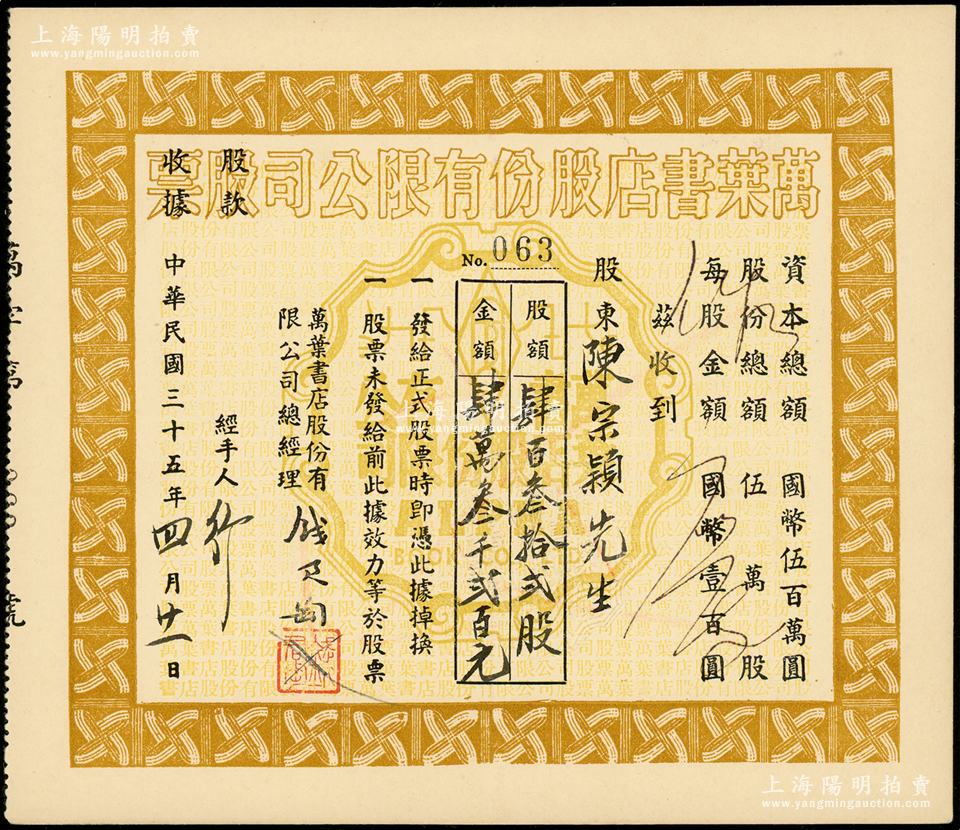 上海陽明拍賣
www.yangmingauction.com
萬葉書店股份有限公司股票
股款
收據
No. 063
資本總額 國幣伍百萬圓
股份總額 伍萬股
每股金額 國幣壹百圓
茲收到
股東陳宗潁先生
股額 肆百叁拾弍股
金額 肆萬叁千弍百元
一 發給正式股票時即憑此據掉換
一 股票未發給前此據效力等於股票
萬葉書店股份有
限公司總經理 錢君匋
經手人
中華民國三十五年四月廿一日
上海陽明拍賣
www.yangmingauction.com
上海陽明拍賣
www.yangmingauction.com